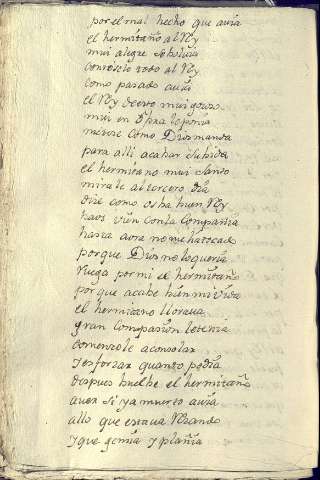 por el mal hecho que auia
el hermitaño al Rey
mui alegre se boluia
contoselo todo al Rey
como pasado auia
el Rey deesto mui goso
mui en obra lo ponia
metese como Dios manda
para alli acabar su bida
el hermitano mui santo
mirale al tercero dia
dize como os ba buen Rey
baos bien con la compañia
hasta aora no me ha tocado
porque Dios no lo queria
ruega por mi el hermitaño
porque acabe bien mi vida
el hermitano lloraua
gran compasion le tenia
comenzole a consolar
y esforzar quanto podia
despues buelbe el hermitaño
a uer si ya muerto auia
allo que estaua rezando
y que gemia y plañia